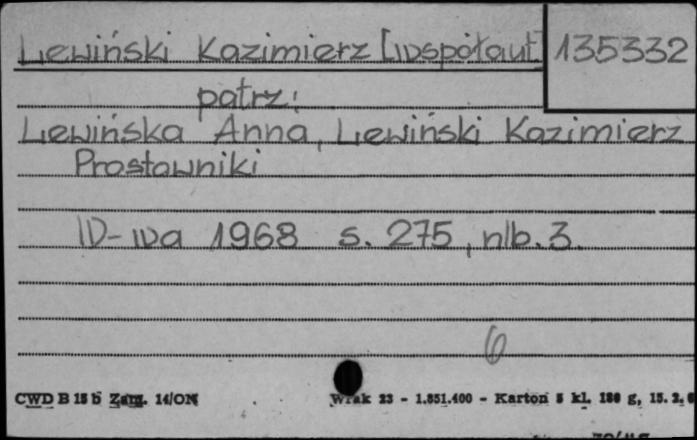 Lewiński Kazimierz [współaut] 135332
patrz:
Lewińska Anna, Lewiński Kazimierz
Prostowniki
W-wa 1968 s. 275, nlb. 3.
6
CWD B 15 b Zam. 14/ON Wrak 23 - 1.851.400 - Karton 5 kl. 180 g, 15. 2. 6